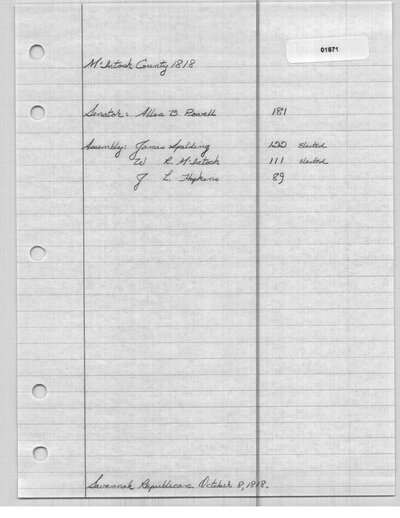 01671
McIntosh County 1818
Senator: Allen B. Powell 181
Assembly: James Spalding 122 elected
W R. McIntosh 111 elected
J L. Hopkins 89
Savannah Republican. October 8, 1818.